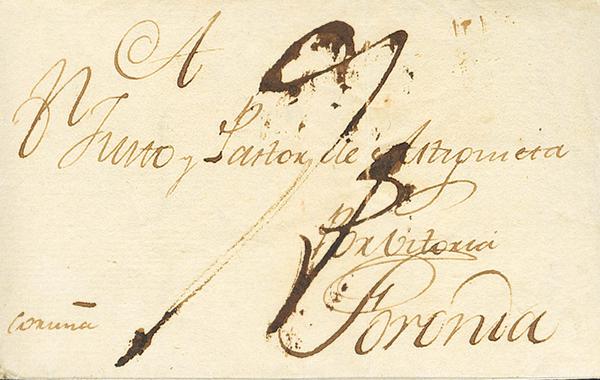 A
Dn Justo y Pastor de Astiquieta
Por Vitoria
Foronda
Coruña